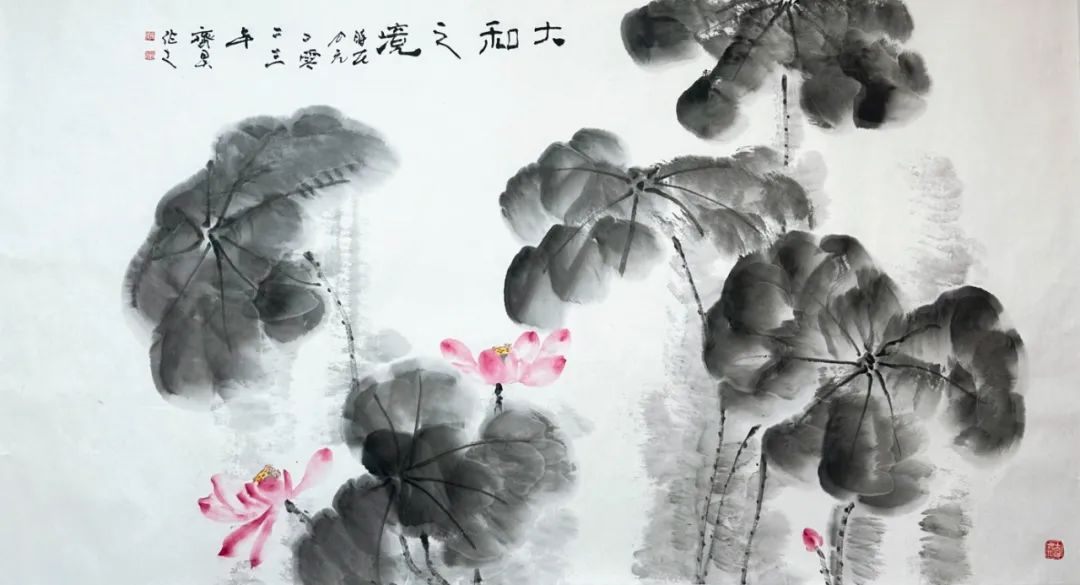 大和之境
時在
公元
二零
二三
年
齊
作